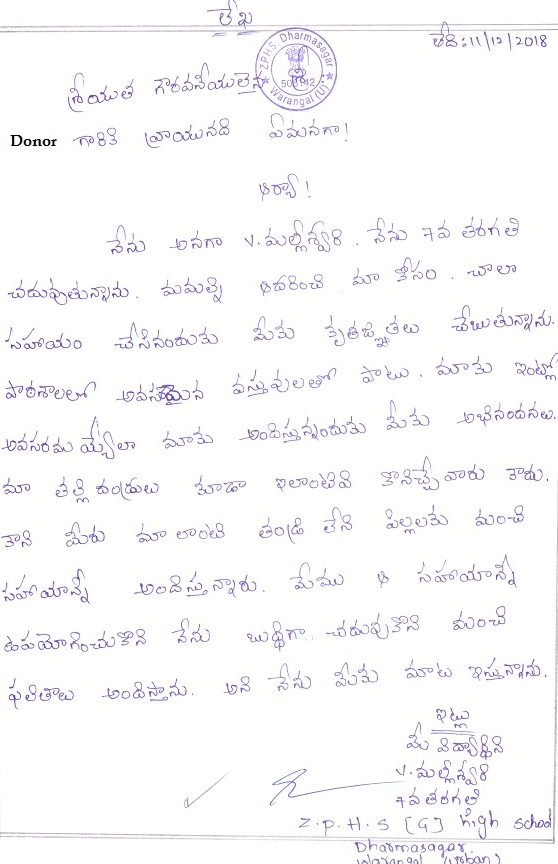 లేఖ
తేది: 11/12/2018
ZPHS, Dharmasagar
Warangal (U)
శ్రీయుత గౌరవనీయులైన
Donor గారికి వ్రాయునది ఏమనగా!
ఆర్యా!
నేను అనగా V. మల్లీశ్వరి. నేను 7వ తరగతి
చదువుతున్నాను. మమల్ని ఆదరించి మా కోసం. చాలా
సహాయం చేసినందుకు మీకు కృతజ్ఞతలు చేబుతున్నాను.
పాఠశాలలో అవసరమైన వస్తువులతో పాటు. మాకు ఇంట్లో
అవసరము య్యేలా మాకు అందిస్తున్నందుకు మీకు అభినందనలు.
మా తల్లి దండ్రులు కూడా ఇలాంటివి కొనిచ్చే వారు కాదు.
కాని మీరు మా లాంటి తండ్రి లేని పిల్లలకు మంచి
సహాయాన్ని అందిస్తున్నారు. మేము ఆ సహాయాన్ని
ఉపయోగించుకొని నేను బుద్ధిగా.. చదువుకొని మంచి
ఫలితాలు అందిస్తాను. అని నేను మీకు మాట ఇస్తున్నాను.
ఇట్లు
మీ విద్యార్థిని
V. మల్లీశ్వరి
7వ తరగతి
Z.P.H.S [G] High school
Dharmasagar.
Warangal (urban)